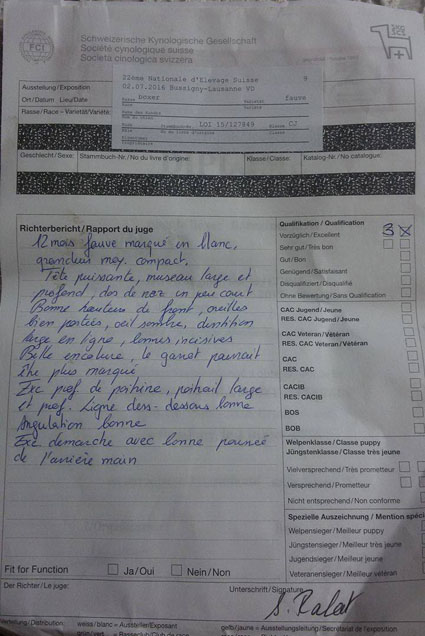 FCI
Schweizerische Kynologische Gesellschaft
Société cynologique suisse
Società cinologica svizzera
22ème Nationale d'Elevage Suisse 9
02.07.2016 Bussigny-Lausanne VD
Ausstellung/Exposition
Ort/Datum Lieu/Date
Boxer fauve
Rasse/Race - Varietät/Variété
LOI 15/127849 Classe CJ
Geschlecht/Sexe: Stammbuch-Nr/No du livre d'origine: Klasse/Classe: Katalog-Nr/No catalogue:
Richterbericht/Rapport du juge
12 mois fauve marqué en blanc,
grandeur moy. compact.
Tête puissante, museau large et
profond, dos de nez un peu court
Bonne hauteur de front, oreilles
bien portées, oeil sombre, dentition
large en ligne, bonnes incisives
Belle encolure, le garrot pourrait
être plus marqué
Exc prof de poitrine, poitrail large
et prof. Ligne dess-dessous bonne
Angulation bonne
Exc demarche avec bonne poussée
de l'arrière main
Fit for Function Ja/Oui Nein/Non
Der Richter/Le juge:
Unterschrift/Signature
Qualifikation/Qualification
Vorzüglich/Excellent 3 X
Sehr gut/Très bon
Gut/Bon
Genügend/Satisfaisant
Disqualifiziert/Disqualifié
Ohne Bewertung/Sans Qualification
CAC Jugend/Jeune
RES. CAC Jugend/Jeune
CAC Veteran/Vétéran
RES. CAC Veteran/Vétéran
CAC
RES. CAC
CACIB
RES. CACIB
BOS
BOB
Welpenklasse/Classe puppy
Jüngstenklasse/Classe très jeune
Vielversprechend/Très prometteur
Versprechend/Prometteur
Nicht entsprechend/Non conforme
Spezielle Auszeichnung/Mention spéci
Welpensieger/Meilleur puppy
Jüngstensieger/Meilleur très jeune
Jugendsieger/Meilleur jeune
Veteranensieger/Meilleur vétéran
weiss/blanc = Aussteller/Exposant
gelb/jaune = Ausstellungsleitung/Secrétariat de l'exposition